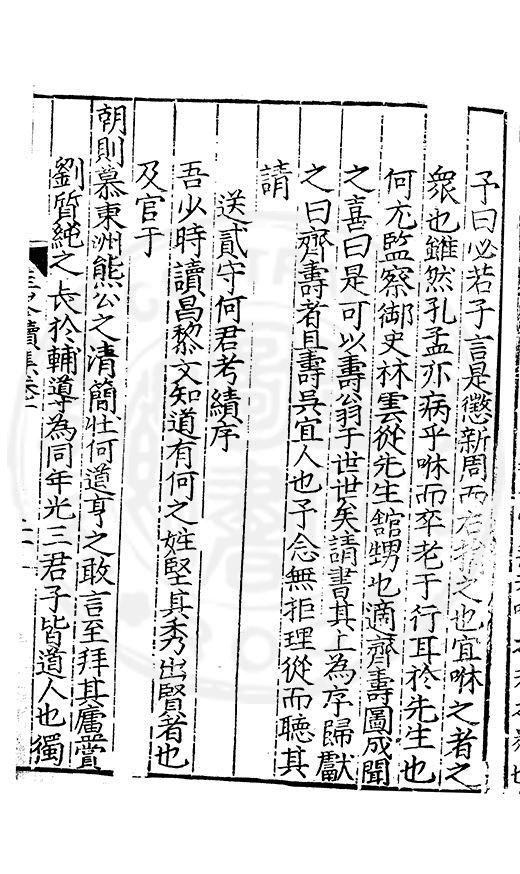 予曰必若子言是懲新周而右之也宜咻之者之
衆也雖然孔孟亦病乎咻而卒老于行耳於先生也
何尤監察御史林雲從先生舘甥也適齊壽圖成聞
之喜曰是可以壽翁于世世矣請書其上為序歸獻
之曰齊壽者且壽吳宜人也予念無拒理從而聽其
請
送貳守何君考績序
吾少時讀昌黎文知道有何之姓堅其秀出賢者也
及官于
朝則慕東洲熊公之清簡壯何道亨之敢言至拜其廬嘗
劉質純之長於輔導為同年光三君子皆道人也獨